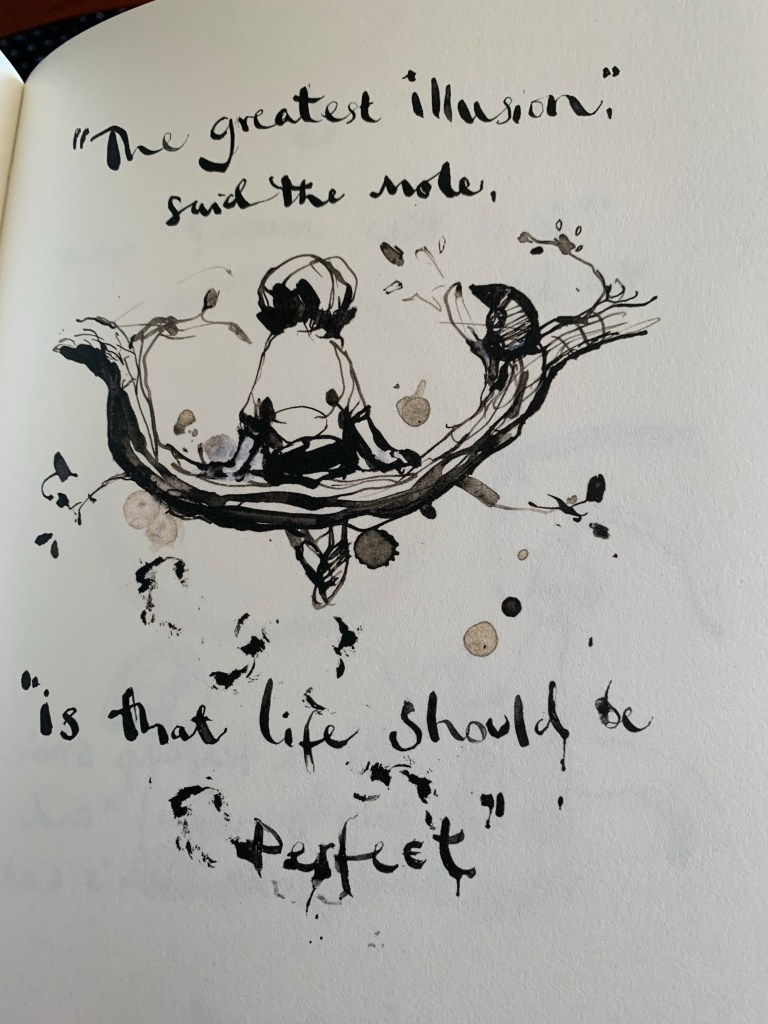 "The greatest illusion,"
said the mole,
"is that life should be
Perfect"